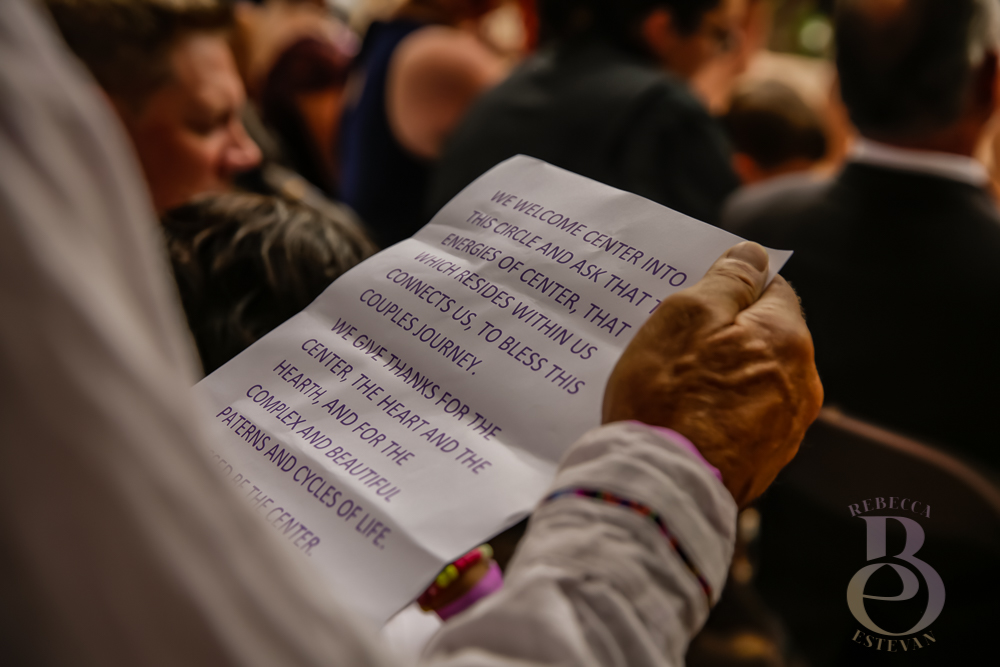 WE WELCOME CENTER INTO
THIS CIRCLE AND ASK THAT
ENERGIES OF CENTER, THAT
WHICH RESIDES WITHIN US
CONNECTS US, TO BLESS THIS
COUPLES JOURNEY.
WE GIVE THANKS FOR THE
CENTER, THE HEART AND THE
HEARTH, AND FOR THE
COMPLEX AND BEAUTIFUL
PATERNS AND CYCLES OF LIFE.
BE THE CENTER.
REBECCA
BE
ESTEVAN